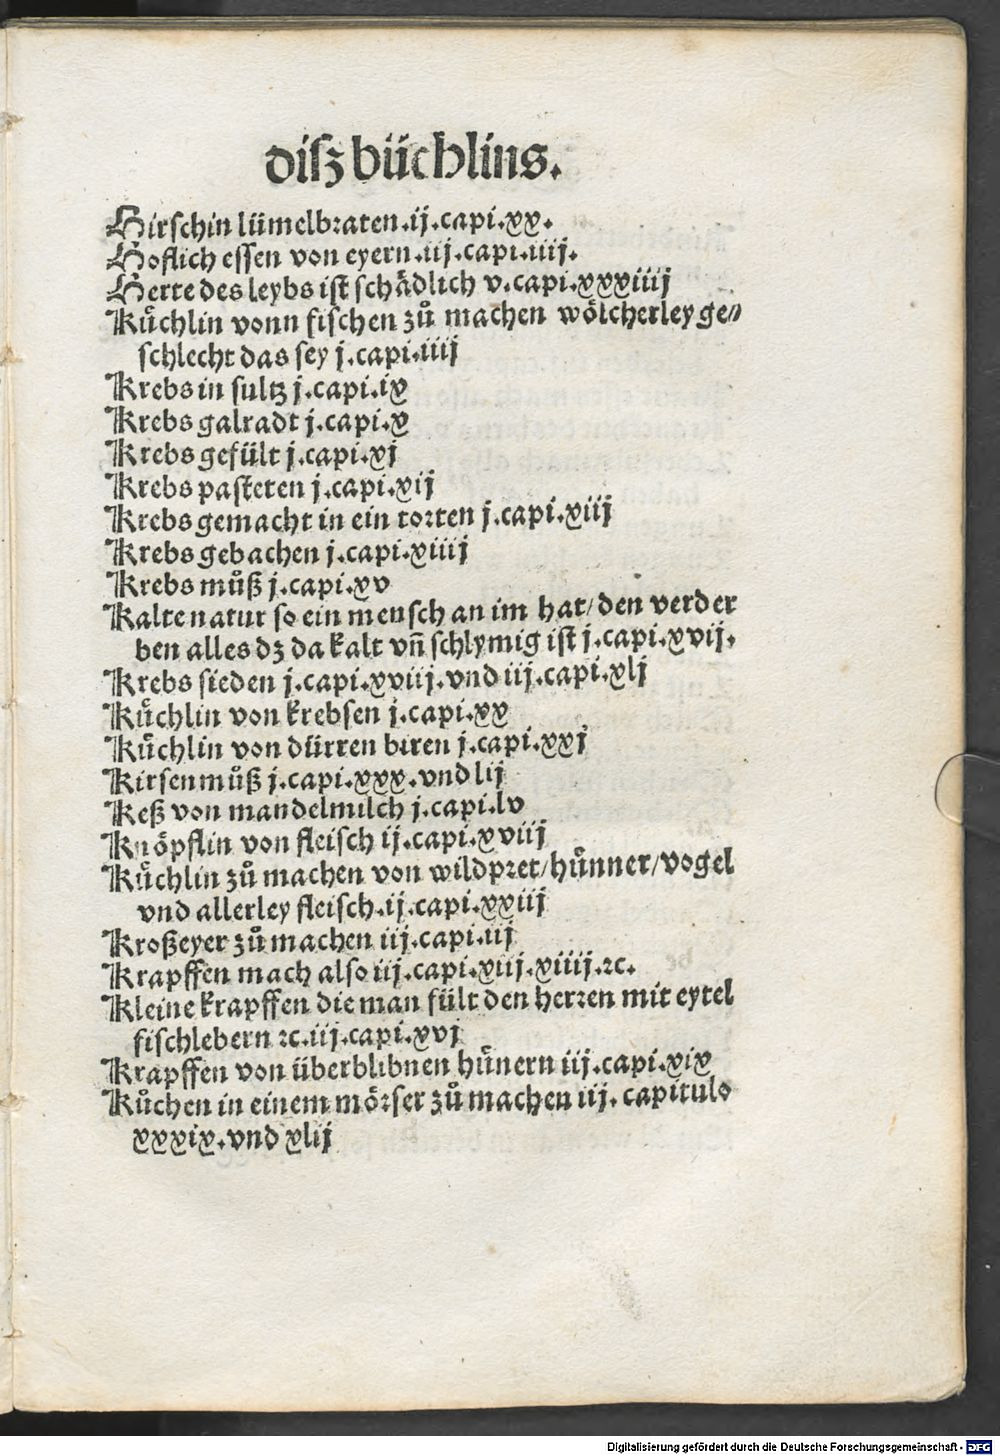 disz büchlins.
Hirschin lümelbraten.ij.capi.xx.
Hoflich essen von eyern.iij.capi.iiij.
Herte des leybs ist schådlich v.capi.xxxiiij
Kůchlin vonn fischen zů machen wölcherley ge⸗
schlecht das sey j.capi.iiij
Krebs in sultz j.capi.ix
Krebs galradt j.capi.x
Krebs gefült j.capi.xj
Krebs pasteten j.capi.xij
Krebs gemacht in ein torten j.capi.xiij
Krebs gebachen j.capi.xiiij
Krebs můß j.capi.xv
Kalte natur so ein mensch an im hat/den verder
ben alles dz da kalt vñ schlymig ist j.capi.xvij.
Krebs sieden j.capi.xviij.vnd iij.capi.xlj
Kůchlin von krebsen j.capi.xx
Kůchlin von dürren biren j.capi.xxj
Kirsenmůß j.capi.xxx.vnd lij
Keß von mandelmilch j.capi.lv
Knöpflin von fleisch ij.capi.xviij
Kůchlin zů machen von wildpret/hůnner/vogel
vnd allerley fleisch.ij.capi.xxiij
Kroßeyer zů machen iij.capi.iij
Krapffen mach also iij.capi.xiij.xiiij.⁊c.
Kleine krapffen die man fült den herren mit eytel
fischlebern ⁊c.iij.capi.xvj
Krapffen von überblibnen hůnern iij.capi.xix
Kůchen in einem mörser zů machen iij. capitulo
xxxix.vnd xlij
Digitalisierung gefördert durch die Deutsche Forschungsgemeinschaft - DFG